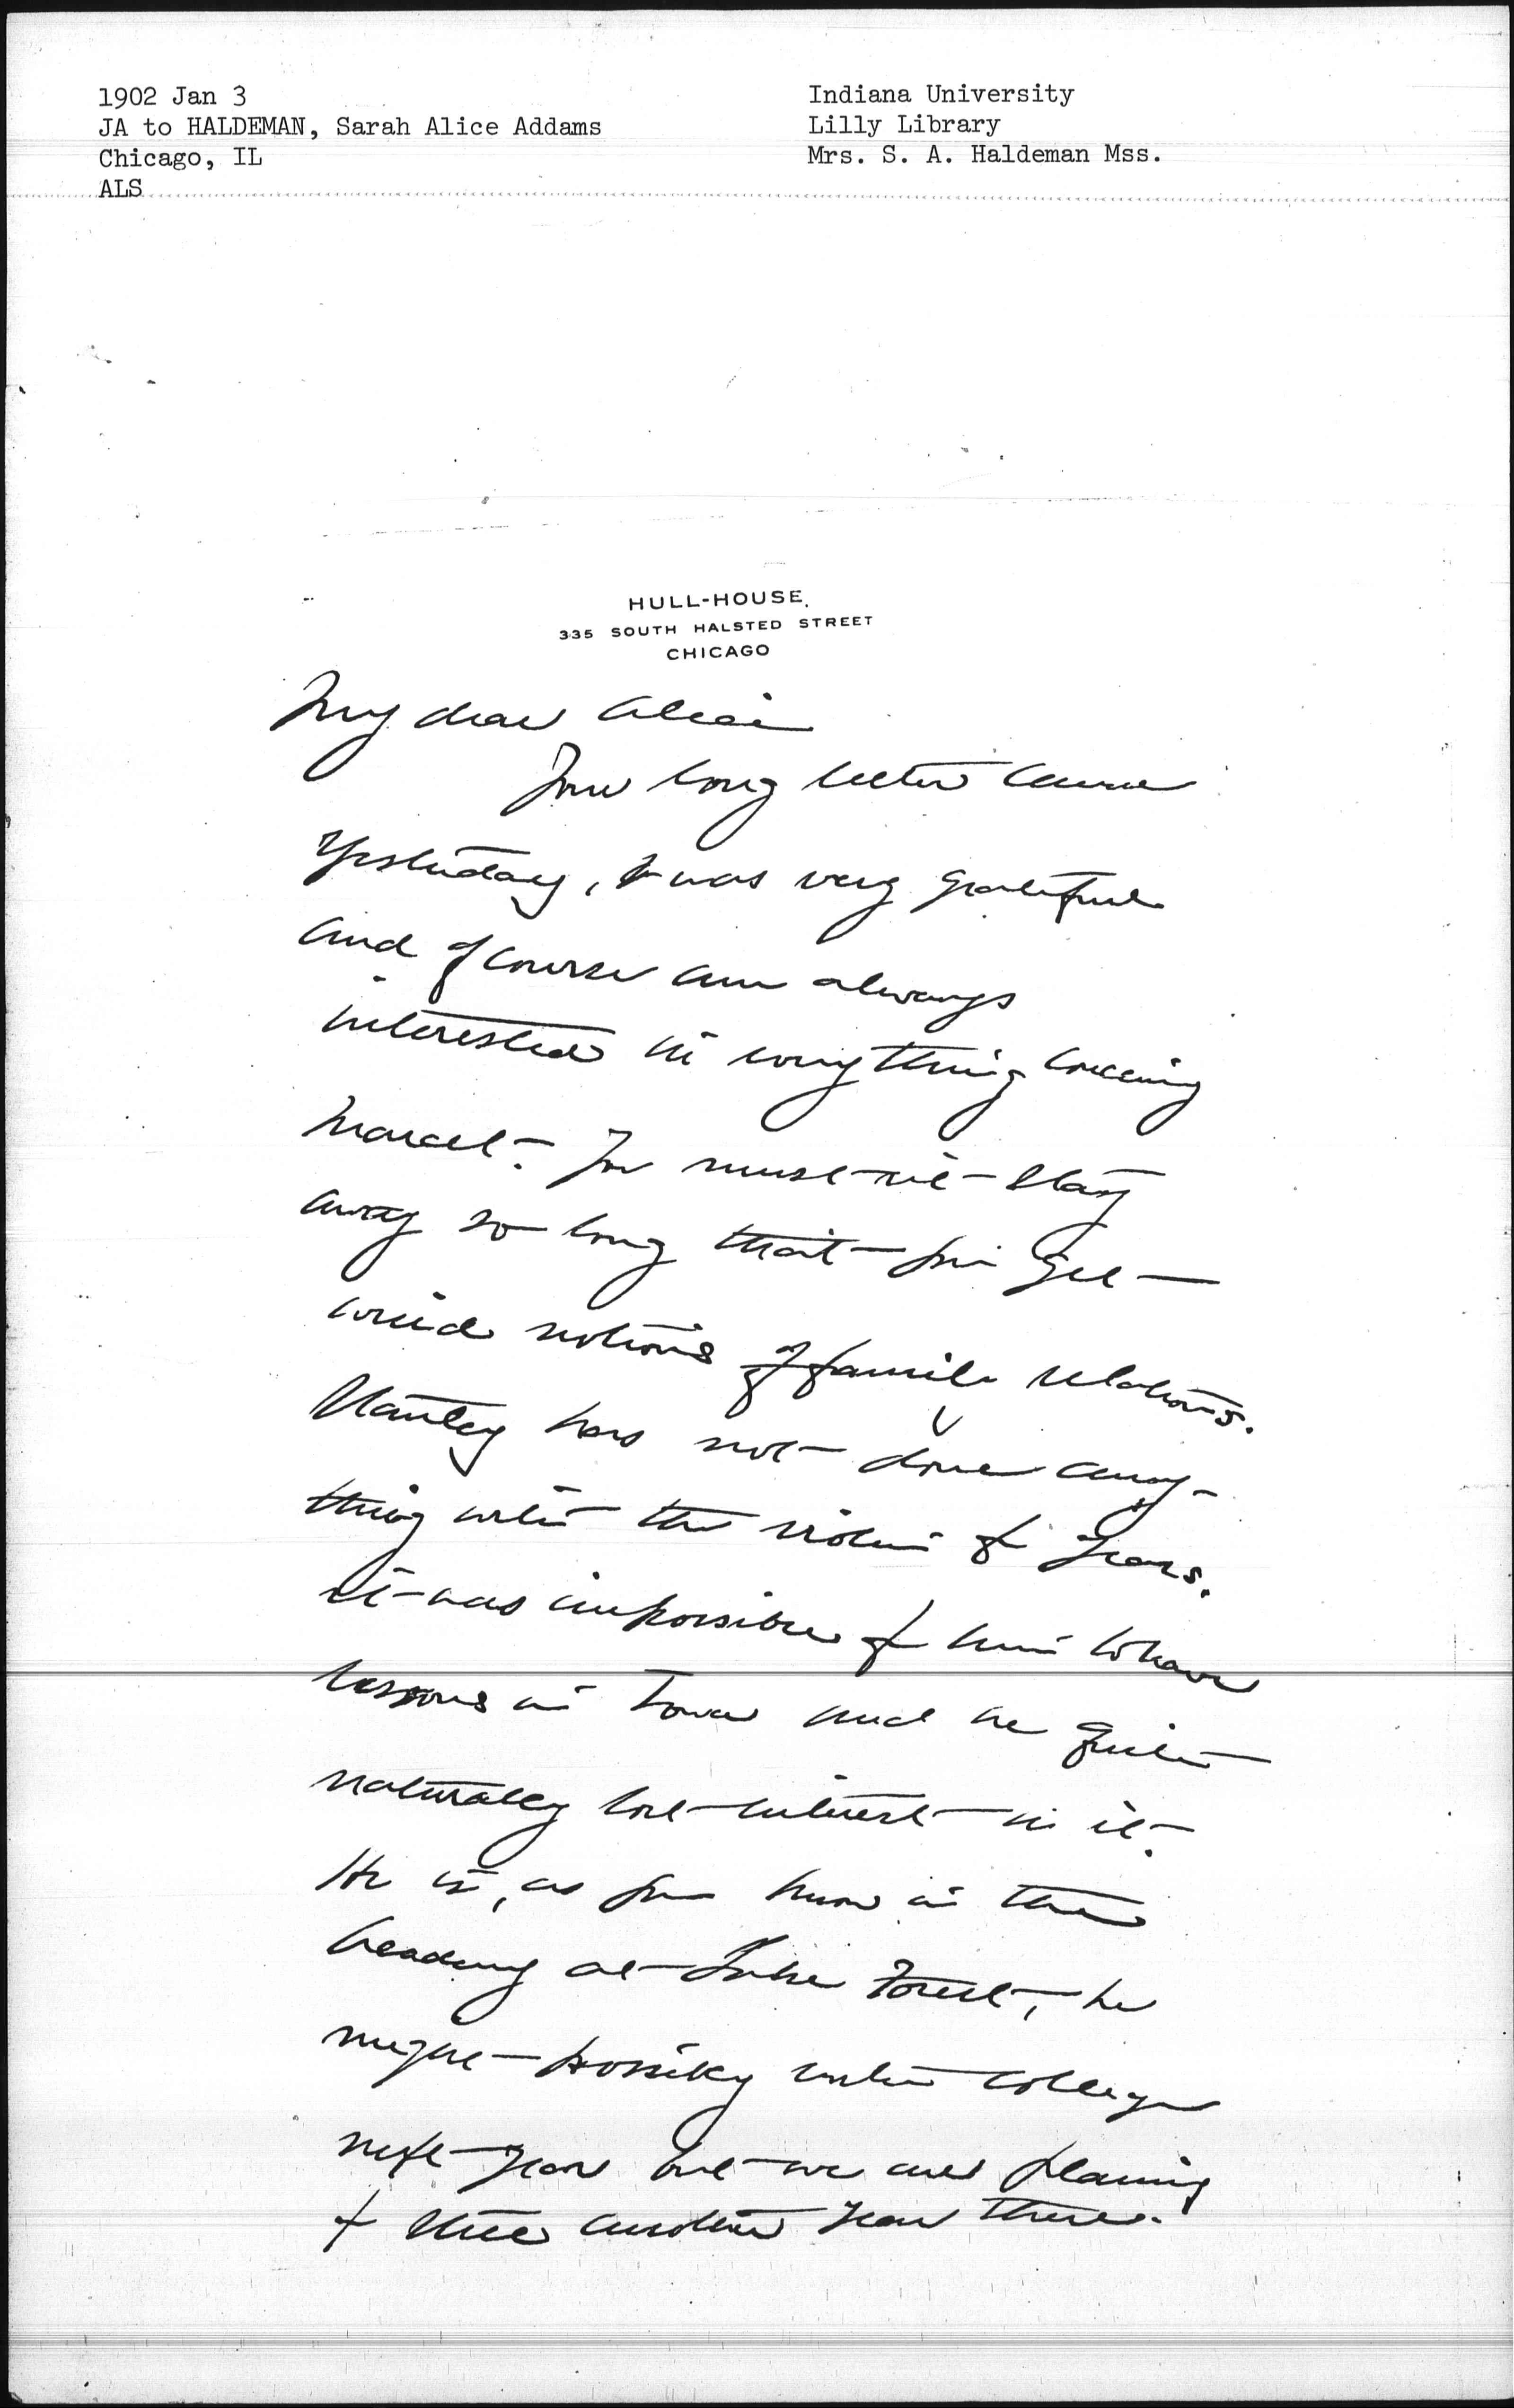 1902 Jan 3
JA to HALDEMAN, Sarah Alice Addams
Chicago, IL
ALS
Indiana University
Lilly Library
Mrs. S. A. Haldeman Mss.
HULL-HOUSE,
335 SOUTH HALSTED STREET
CHICAGO
My dear Alice
Your long letter came
yesterday, I was very grateful
and of course am always
interested in everything concerning
Marcet. You must not stay
away so long that you get
weird notions of family relations.
Stanley has not done any-
thing with the violin for years.
it was impossible for him to have
lessons in Iowa and he quite
naturally lost interest in it.
He is, as you know in the
Academy at Lake Forest, he
might possibly enter college
next year but we are planning
for still another year there.